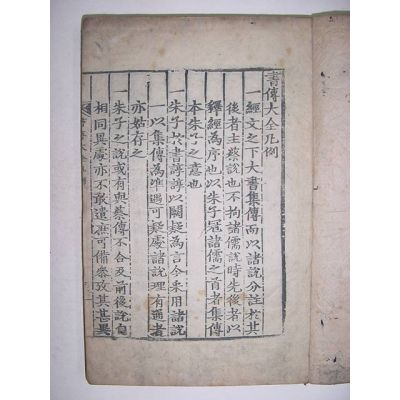 書傳大全凡例
一經文之下大書集傳而以諸說分註於其
後者主蔡說也不拘諸儒說時先後者以
釋經爲序也以朱子冠諸儒之首者集傳
本朱子之意也
一朱子於書諄諄以闕疑爲言今采用諸說
一以集傳爲準過可疑處諸說理有通者
亦姑存之
一朱子之說或有與蔡傳不合及前後說自
相同異處亦不敢遺庶可備參攷其甚異